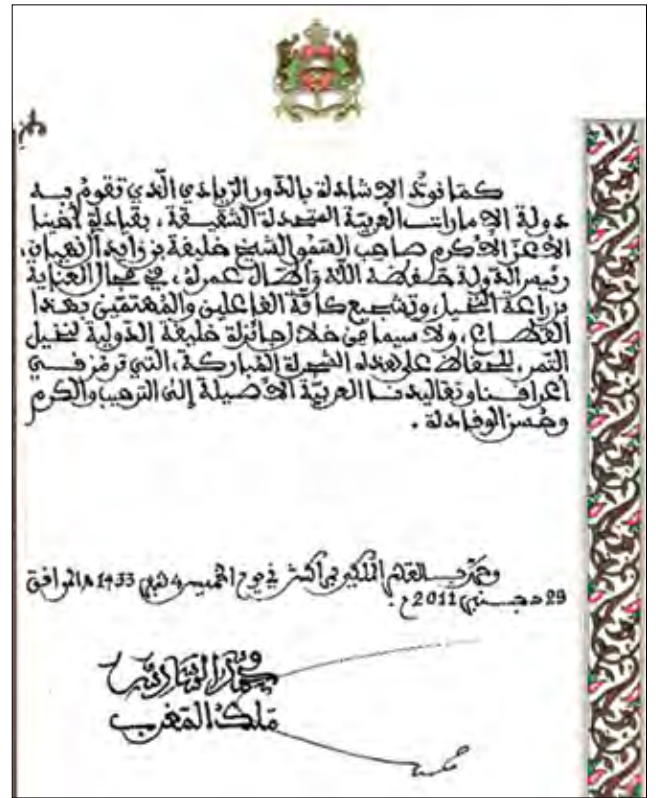 كما نودُّ الإشادة بالدّور الرّيادي الّذي تقومُ به
دولة الإمارات العربيّة المتحدة الشّقيقة، بقيادة أخينا
الأعزّ الأكرم صاحب السّمو الشّيخ خليفة بن زايد آل نهيان،
رئيس الدّولة حفظه اللّه وأطال عمره، في مجال العناية
بزراعة النّخيل، وتشجيع كافّة الفاعلين والمُهتمّين بهذا
القطاع، ولا سيما من خلال جائزة خليفة الدّولية لنخيل
التّمر، للحفاظ على هذه الشّجرة المُباركة، التي ترمُز في
أعرافنا وتقاليدنا العربيّة الأصيلة إلى التّرحيب والكرم
وحُسن الوفادة.
وحُرّر بالقصر الملكي بمراكش في يوم الخميس 4 صفر 1433 هـ الموافق
29 دجنبر 2011 م.
محمد السادس
ملك المغرب